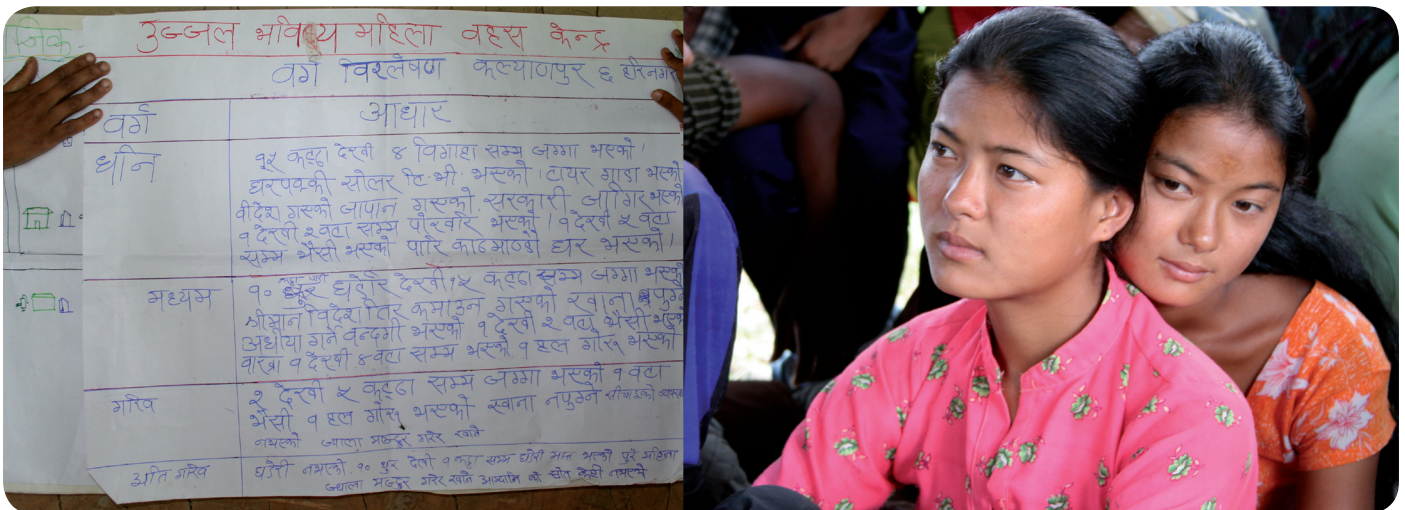 उज्जल भविष्य महिला वहस केन्द्र
वर्ग विश्लेषण कल्याणपुर ६ हरिनगर
वर्ग आधार
धनि
१५ कठ्ठा देखी ४ विगाहा सम्म जग्गा भएको।
घरपक्की सोलर टि.भी. भएको। टायर गाडा भएको
वीदेश गएको जापान गएको सरकारी जागिर भएको
१ देखी २ वटा सम्म परिवार भएको। १ देखी ५ वटा
सम्म भैसी भएको पारि काठमाण्डौ घर भएको।
मध्यम
१० घडेरि देखी १५ कठ्ठा सम्म जग्गा भएको
श्रीमान विदेश तिर कमाउन गएको खाना पुग्ने
अधीया गर्ने वन्दगी भएको १ देखी २ वटा भैसी भएको
वाख्रा १ देखी ४ वटा सम्म भएको १ हल गोरु भएको
गरिव
२ देखी ५ कठ्ठा सम्म जग्गा भएको १ वटा
भैसी १ हल गोरु भएको खाना नपुग्ने सीचाइको
नभएको ज्याला मजदुर गरेर खाने
अति गरिव
घडेरी नभएको १० धुर देखी १ कठ्ठा सम्म घडेरी मात्र भएको
ज्याला मजदुर गरेर खाने आम्दानि को स्रोत केही नभएको